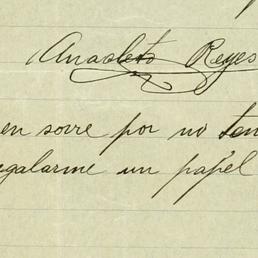 Anacleto Reyes
en sovre por no ten
egalarme un papel